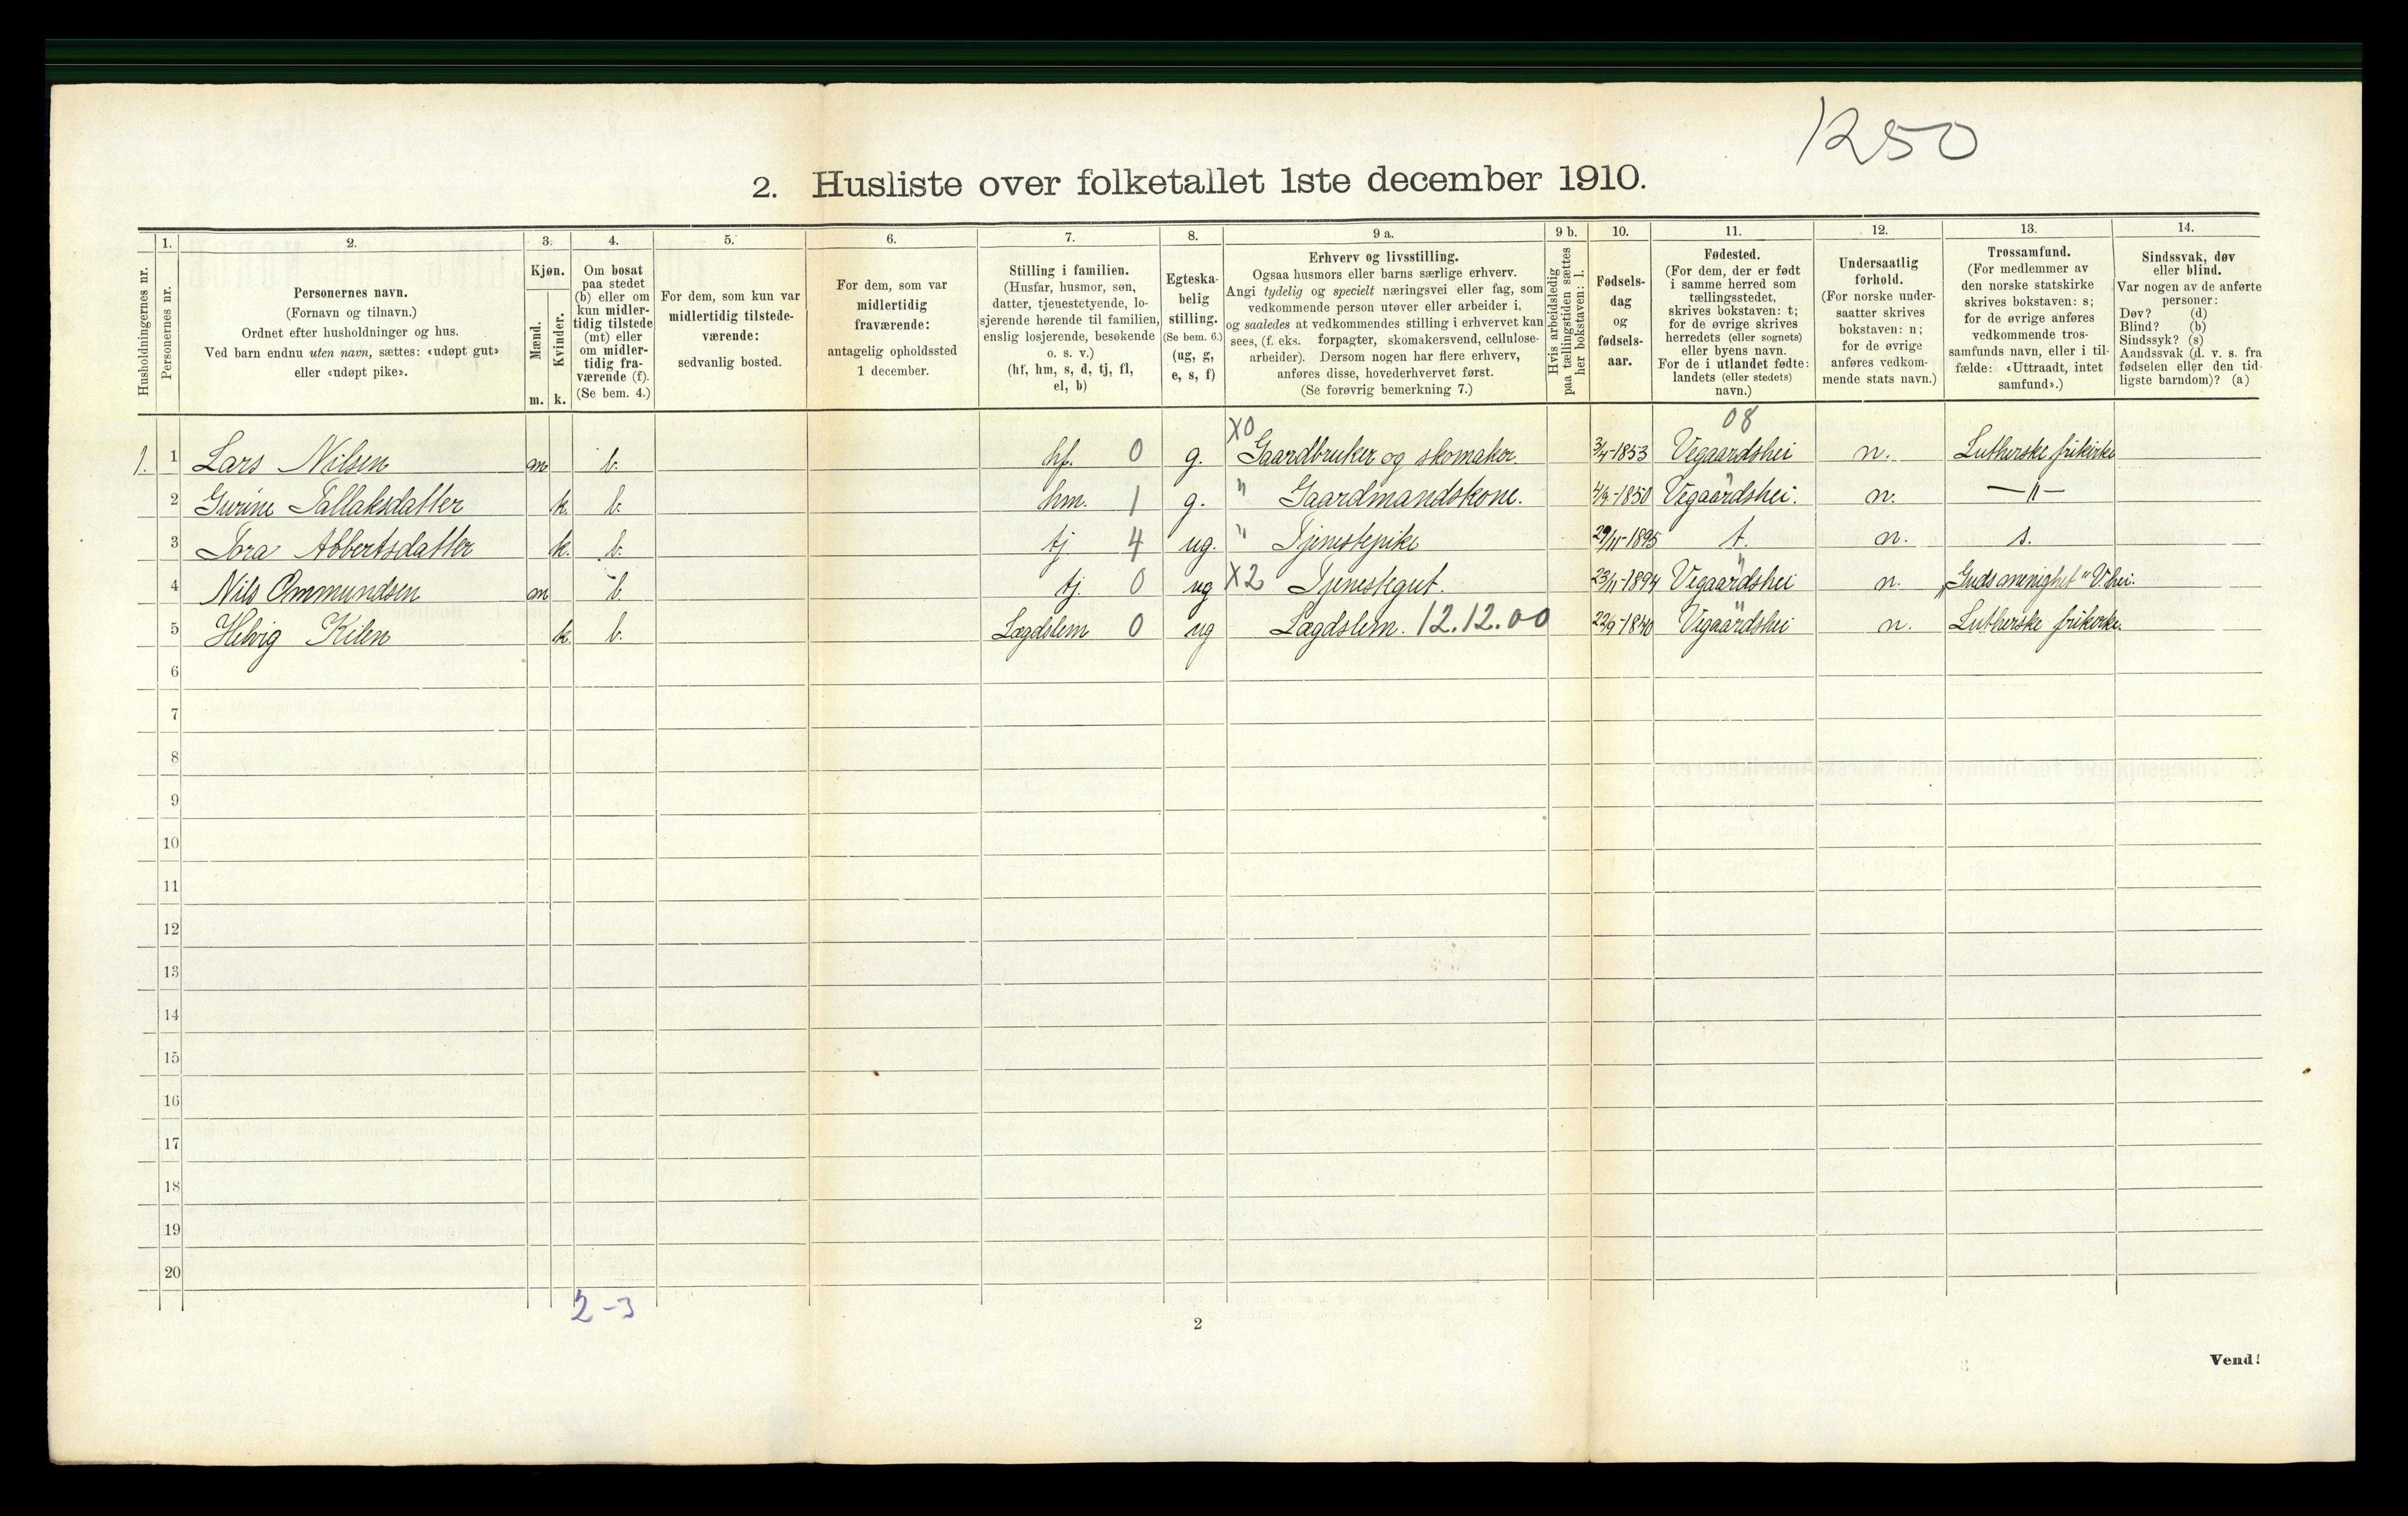 1250
2. Husliste over folketallet 1ste december 1910.
Husholdningernes nr.
1. Personernes nr.
2. Personernes navn. (Fornavn og tilnavn.) Ordnet efter husholdninger og hus. Ved barn endnu uten navn, sættes: «udøpt gut» eller «udøpt pike».
3. Kjøn. Mænd. m. Kvinder. k.
4. Om bosat paa stedet (b) eller om kun midlertidig tilstede (mt) eller om midlertidig fraværende (f). (Se bem. 4.)
5. For dem, som kun var midlertidig tilstedeværende: sedvanlig bosted.
6. For dem, som var midlertidig fraværende: antagelig opholdssted 1 december.
7. Stilling i familien. (Husfar, husmor, søn, datter, tjenestetyende, losjerende hørende til familien, enslig losjerende, besøkende o. s. v.) (hf, hm, s, d, tj, fl, el, b)
8. Egteskabelig stilling. (Se bem. 6.) (ug, g, e, s, f)
9 a. Erhverv og livsstilling. Ogsaa husmors eller barns særlige erhverv. Angi tydelig og specielt næringsvei eller fag, som vedkommende person utøver eller arbeider i, og saaledes at vedkommendes stilling i erhvervet kan sees, (f. eks. forpagter, skomakersvend, cellulosearbeider). Dersom nogen har flere erhverv, anføres disse, hovederhvervet først. (Se forøvrig bemerkning 7.)
9 b. Hvis arbeidsledig paa tællingstiden sættes her bokstaven: l.
10. Fødselsdag og fødselsaar.
11. Fødested. (For dem, der er født i samme herred som tællingsstedet, skrives bokstaven: t; for de øvrige skrives herredets (eller sognets) eller byens navn. For de i utlandet fødte: landets (eller stedets) navn.)
12. Undersaatlig forhold. (For norske undersaatter skrives bokstaven: n; for de øvrige anføres vedkommende stats navn.)
13. Trossamfund. (For medlemmer av den norske statskirke skrives bokstaven: s; for de øvrige anføres vedkommende trossamfunds navn, eller i tilfælde: «Uttraadt, intet samfund».)
14. Sindssvak, døv eller blind. Var nogen av de anførte personer: Døv? (d) Blind? (b) Sindssyk? (s) Aandssvak (d. v. s. fra fødselen eller den tidligste barndom)? (a)
X0 08
1. 1 Lars Nilsen m b. hf. 0 g. Gaardbruker og skomaker. 3/4-1853 Vegaardshei n. Lutherske frikirke
2 Gurine Tallaksdatter k. b. hm. 1 g. " Gaardmandskone. 4/9-1850 Vegaardshei. n. —"—
3 Tora Abbertsdatter k. b. tj 4 ug. " Tjenestepike 29/11-1895 t. n. s.
4 Nils Ommundsen m b. tj. 0 ug X2 Tjenestegut. 23/11-1894 Vegaardshei n. "Guds menighet" V.hei.
5 Helvig Kilen k. b. Lægdslem 0 ug Lægdslem. 12.12.00 22/9-1840 Vegaardshei n. Lutherske frikirke.
6
7
8
9
10
11
12
13
14
15
16
17
18
19
20
2-3
2
Vend!